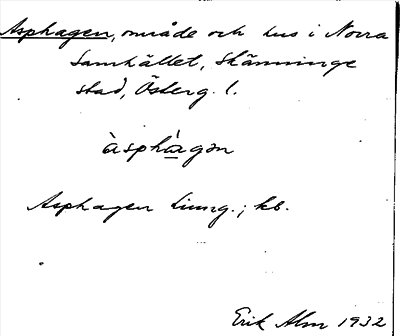 Asphagen, område och hus i Norra
Samhället, Skänninge
stad, Österg. l.
àsphá̱gən
Asphagen Ljung.; kb.
Erik Alm 1932